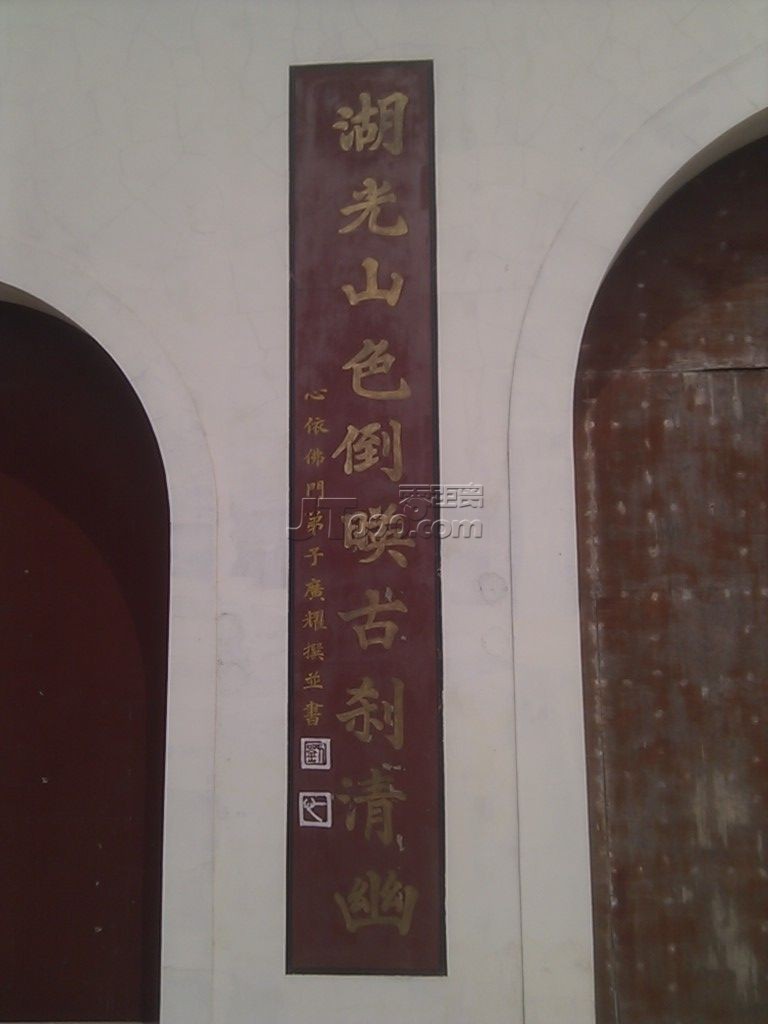 湖光山色倒映古刹清幽
心依佛門弟子廣耀撰並書
劉